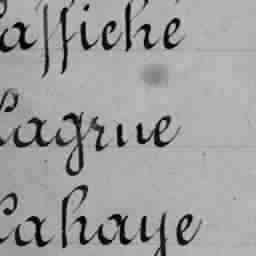 affiché
Lagrue
Lahaye